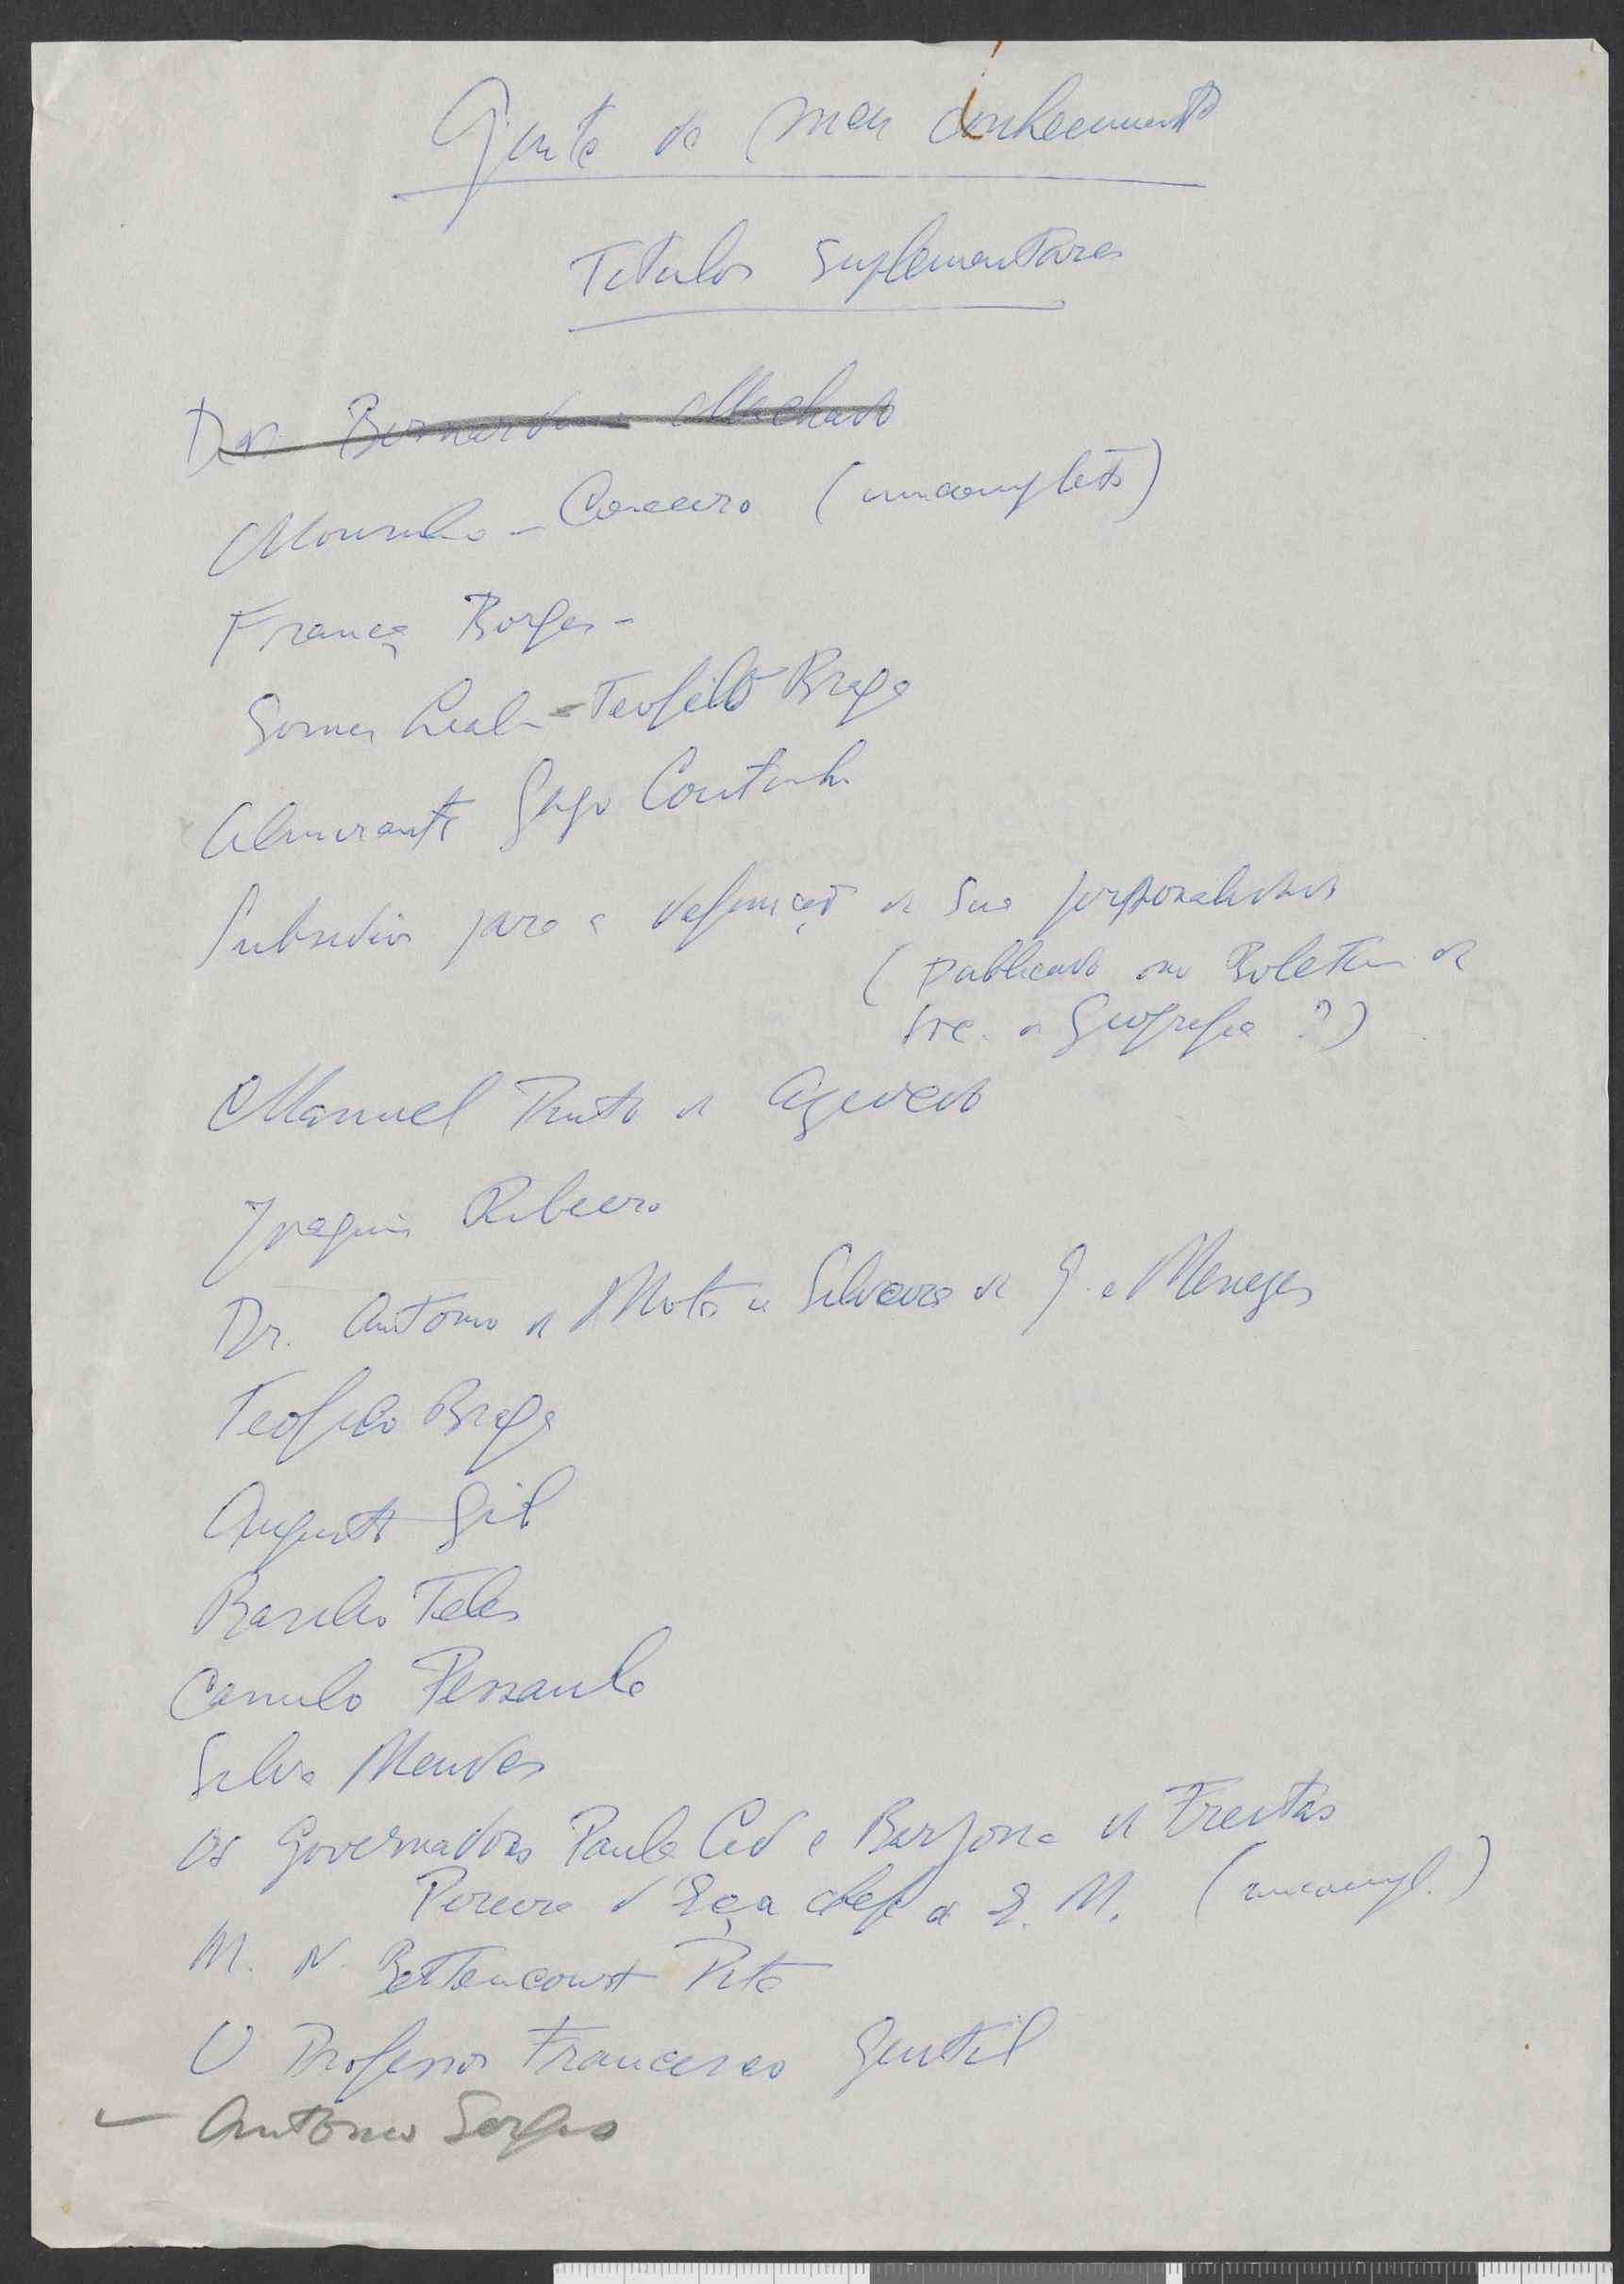 Gente do meu conhecimento
Titulos suplementares
Dr. Bernardino Machado
Mousinho - Couceiro (incompleto)
França Borges -
Gomes Leal - Teofilo Braga
Almirante Gago Coutinho
Subsidios para a definição da sua personalidade
(publicado no Boletim da
Soc. de Geografia ?)
Manuel Pinto de Azevedo
Joaquim Ribeiro
Dr. Antonio da Mota e Silveira de G. e Menezes
Teofilo Braga
Augusto Gil
Basilio Teles
Camilo Pessanha
Silva Mendes
Os Governadores Paula Cid e Barjona de Freitas
Pereira d'Eça chefe do E. M. (incompl.)
M. N. Bettencourt Pita
O Professor Francisco Gentil
Antonio Sergio